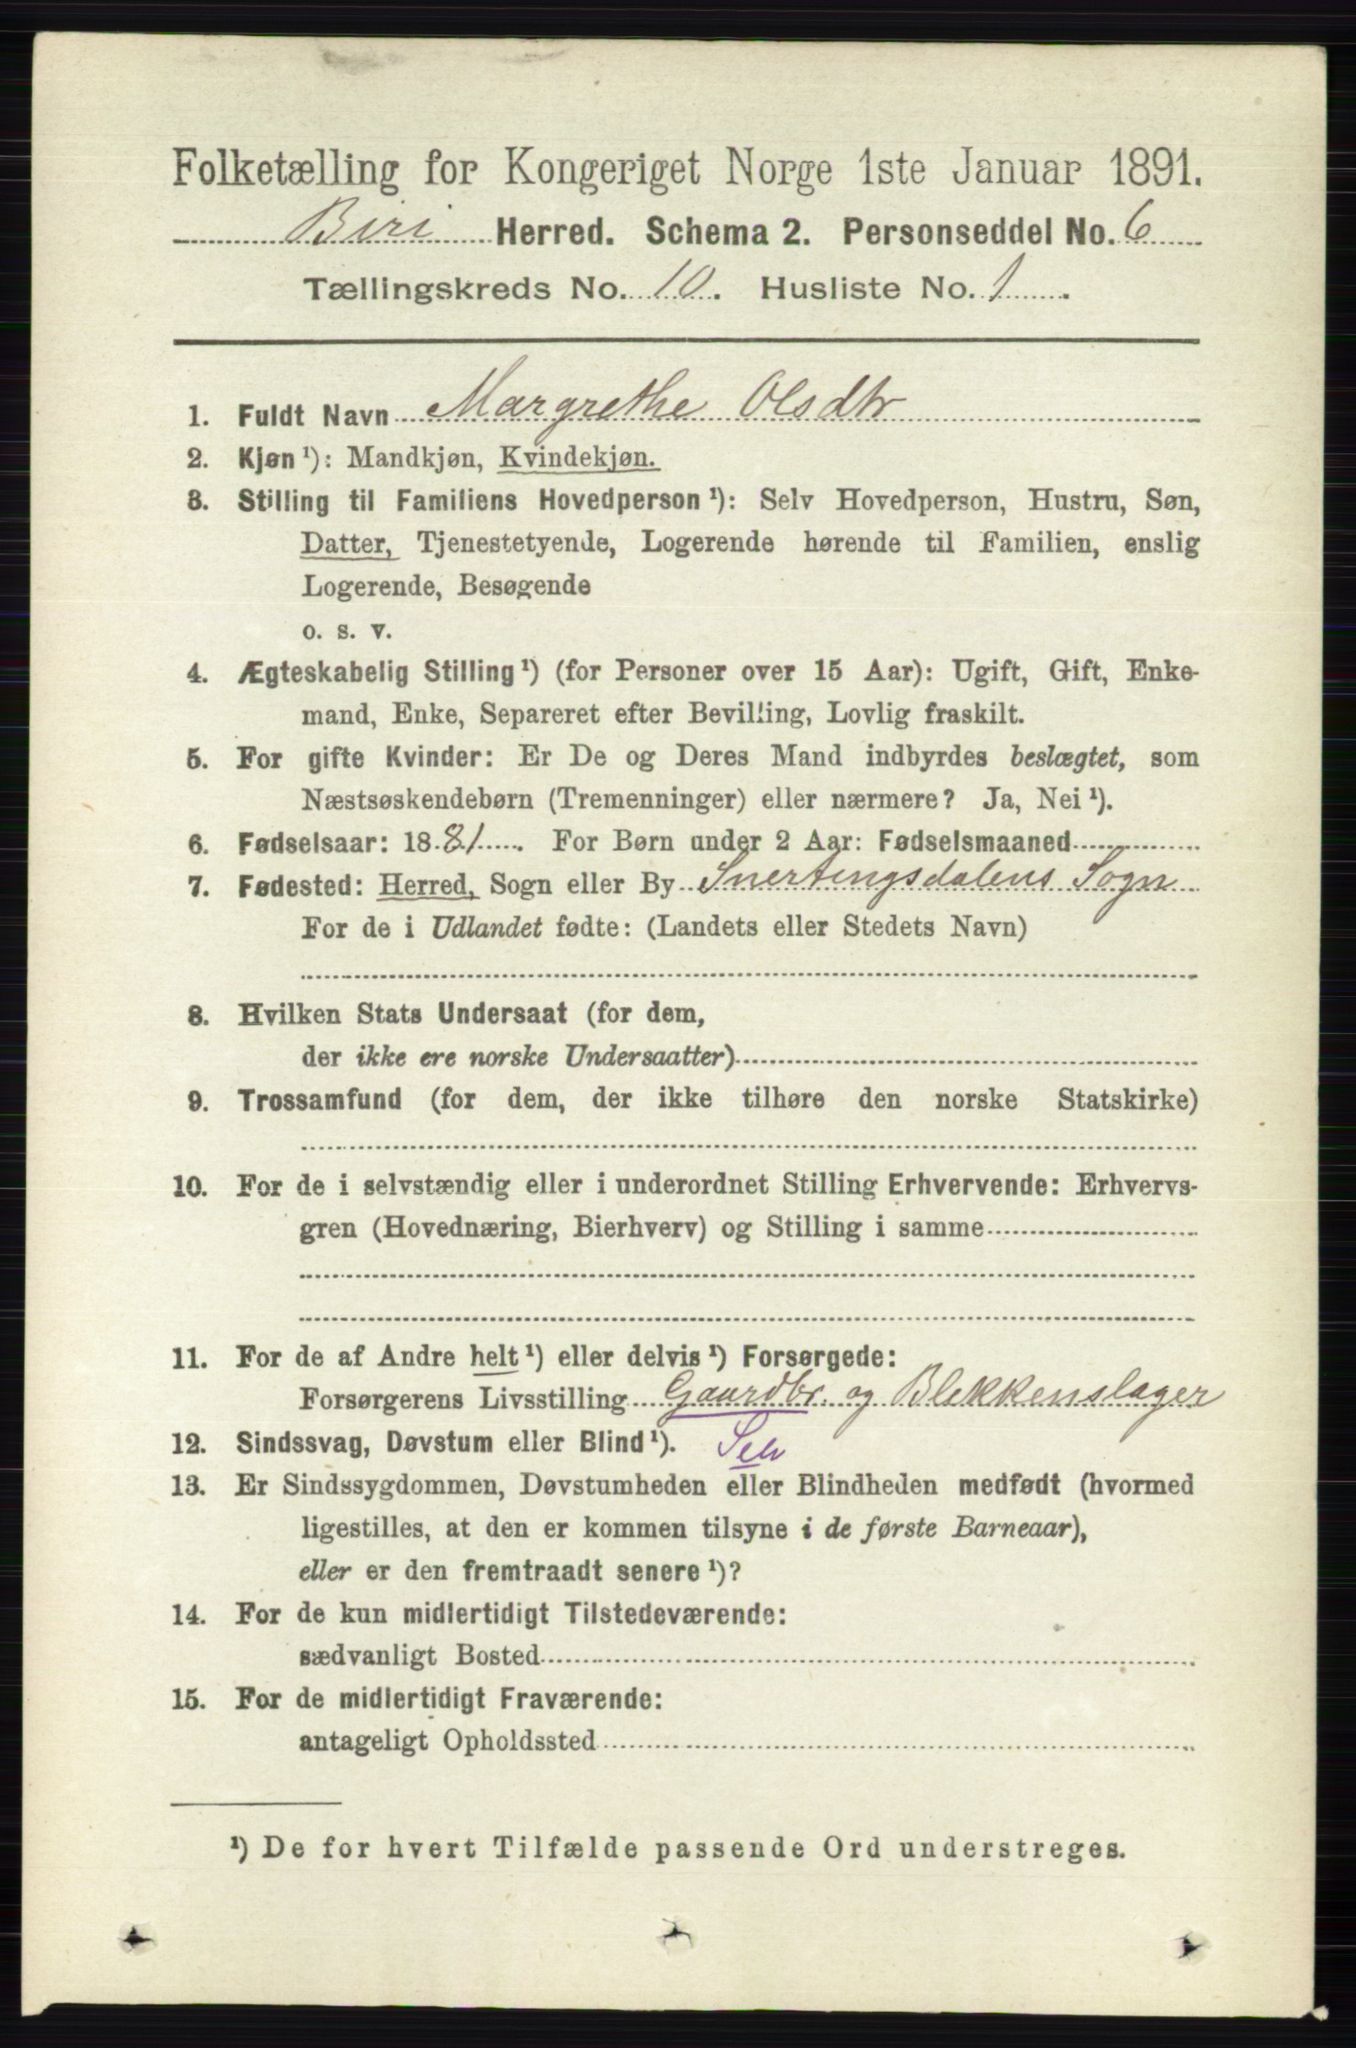 Folketælling for Kongeriget Norge 1ste Januar 1891.
Biri Herred. Schema 2. Personseddel No. 6
Tællingskreds No. 10. Husliste No. 1.
1. Fuldt Navn Margrethe Olsdtr
2. Kjøn ¹): Mandkjøn, Kvindekjøn.
3. Stilling til Familiens Hovedperson ¹): Selv Hovedperson, Hustru, Søn,
Datter, Tjenestetyende, Logerende hørende til Familien, enslig
Logerende, Besøgende
o. s. v.
4. Ægteskabelig Stilling ¹) (for Personer over 15 Aar): Ugift, Gift, Enke-
mand, Enke, Separeret efter Bevilling, Lovlig fraskilt.
5. For gifte Kvinder: Er De og Deres Mand indbyrdes beslægtet, som
Næstsøskendebørn (Tremenninger) eller nærmere? Ja, Nei ¹).
6. Fødselsaar: 1881. For Børn under 2 Aar: Fødselsmaaned
7. Fødested: Herred, Sogn eller By Snertingsdalens Sogn
For de i Udlandet fødte: (Landets eller Stedets Navn)
8. Hvilken Stats Undersaat (for dem,
der ikke ere norske Undersaatter)
9. Trossamfund (for dem, der ikke tilhøre den norske Statskirke)
10. For de i selvstændig eller i underordnet Stilling Erhvervende: Erhvervs-
gren (Hovednæring, Bierhverv) og Stilling i samme
11. For de af Andre helt ¹) eller delvis ¹) Forsørgede:
Forsørgerens Livsstilling Gaardbr. og Blekkenslager
12. Sindssvag, Døvstum eller Blind ¹). Selv
13. Er Sindssygdommen, Døvstumheden eller Blindheden medfødt (hvormed
ligestilles, at den er kommen tilsyne i de første Barneaar),
eller er den fremtraadt senere ¹)?
14. For de kun midlertidigt Tilstedeværende:
sædvanligt Bosted
15. For de midlertidigt Fraværende:
antageligt Opholdssted
¹) De for hvert Tilfælde passende Ord understreges.